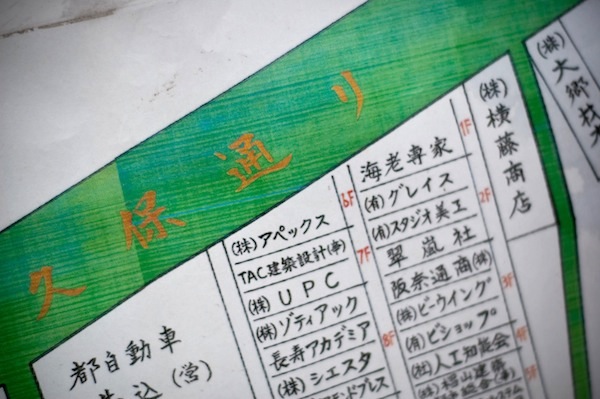 久保通り
(株)横藤商店
海老専家
1F
(有)グレイス
2F
(有)スタジオ美工
翠嵐社
阪奈通商(株)
(株)ビーウイング
(有)ビショップ
(社)人工知能会
6F
(株)アペックス
7F
TAC建築設計(事)
(株)UPC
(株)ゾディアック
長寿アカデミア
8F
(株)シエスタ
都自動車
(営)
(株)大郷